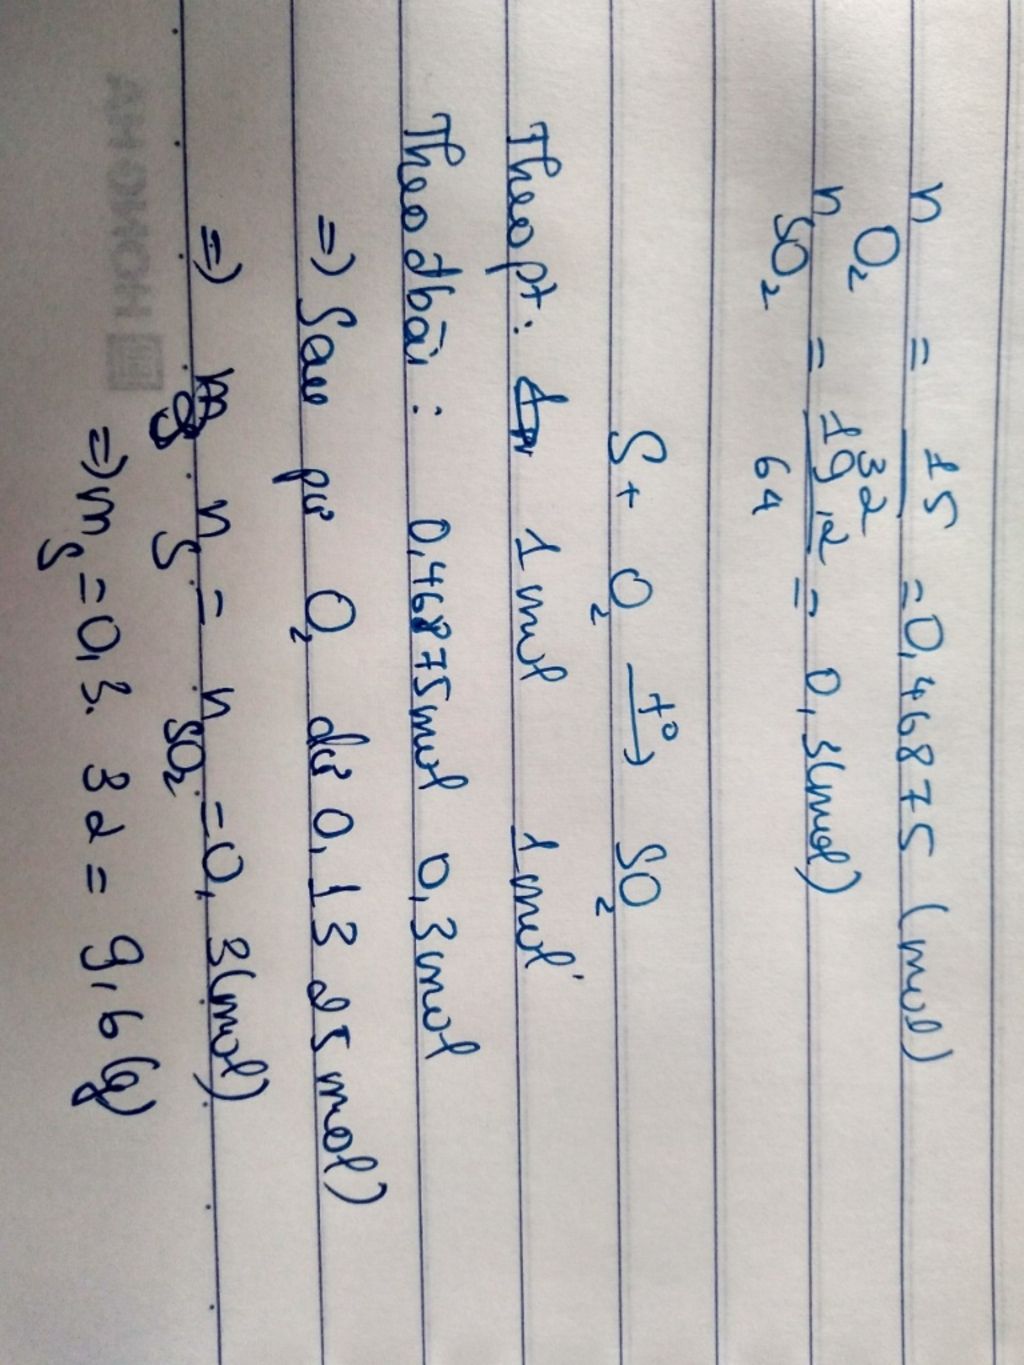 n O₂ = 15/32 = 0,46875 (mol)
n SO₂ = 19,2/64 = 0,3(mol)
S + O₂ t°→ SO₂
Theo pt: 1 mol 1 mol
Theo đbài: 0,46875mol 0,3mol
=) Sau pư O₂ dư 0,13 25 mol)
=) n S = n SO₂ = 0,3(mol)
=) m S = 0,3. 32 = 9,6 (g)
HONG HA